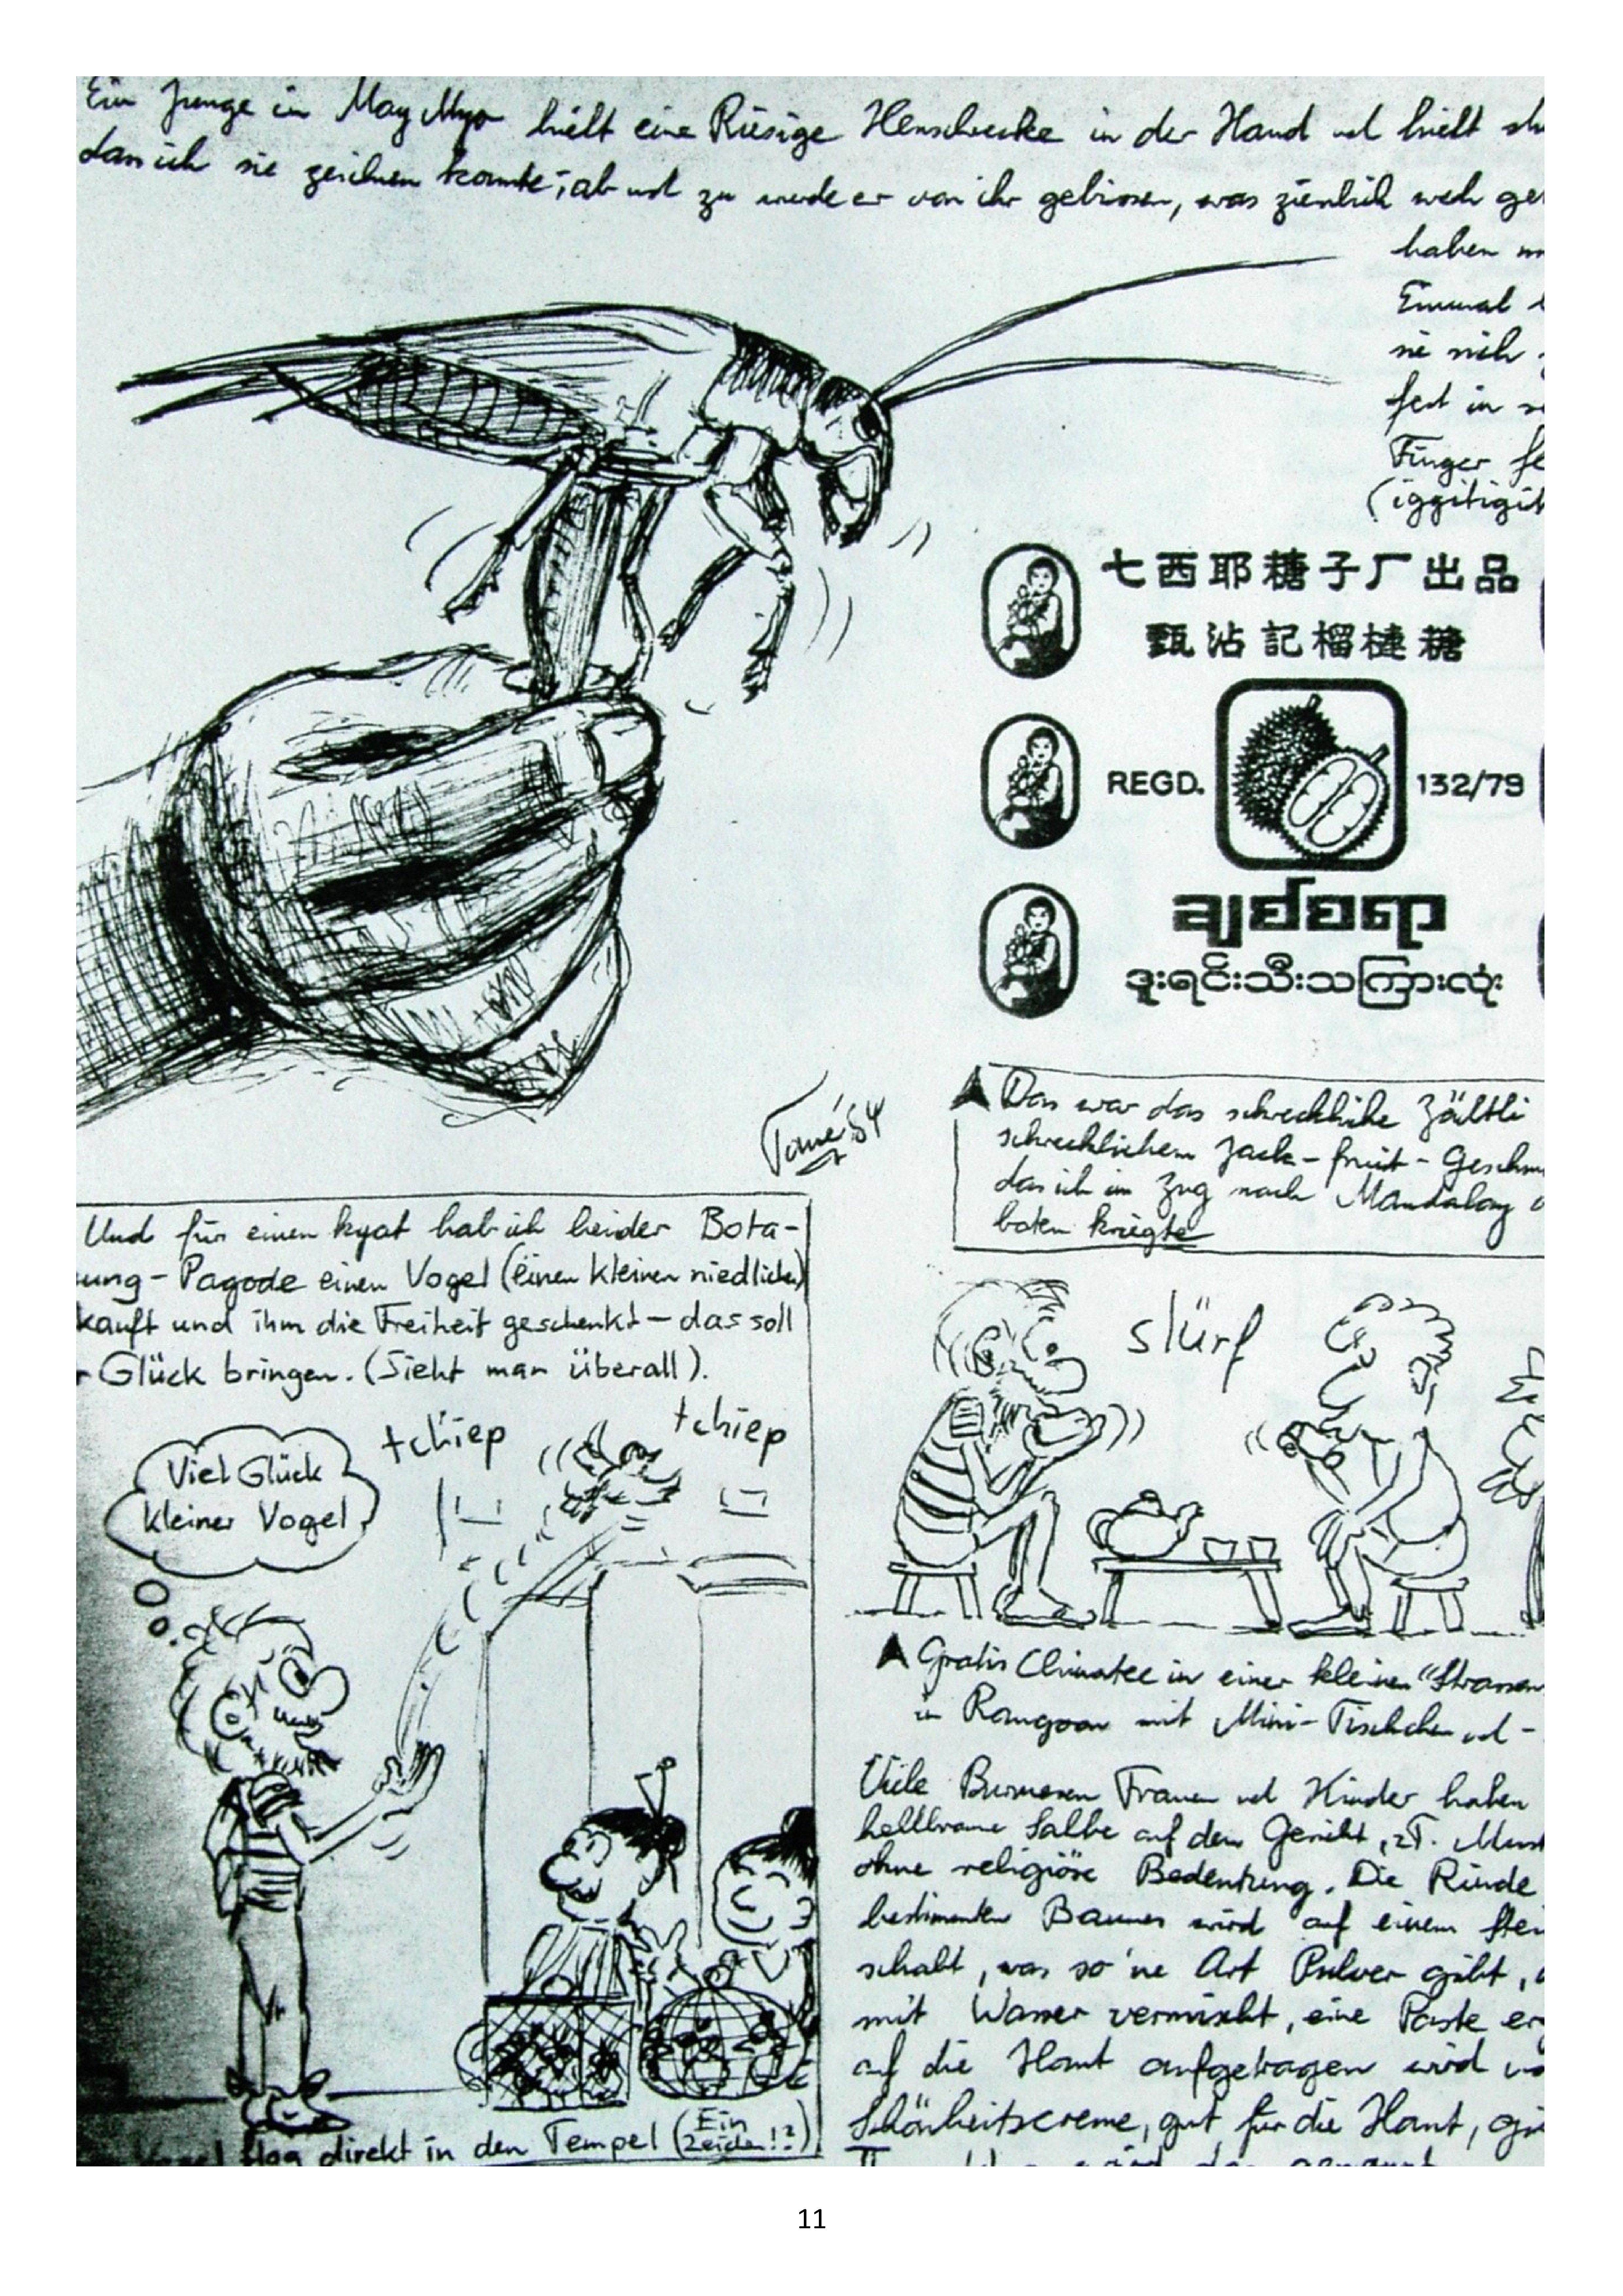 Ein Junge in May Myo hielt eine Riesige Heuschrecke in der Hand und hielt
dass ich sie zeichnen konnte; ab und zu wurde er von ihr gebissen, was ziemlich weh
haben
Einmal
sie sich
fest in
Finger
(iggitigit
七西耶糖子厂出品
甄沾記榴梿糖
REGD. 132/79
ချစ်စရာ
ဒူးရင်းသီးသကြားလုံး
Das war das schreckliche Zältli
schrecklichem Jack-fruit-Geschm
das ich im Zug nach Mandalay
boten kriegte
Tomé 84
Und für einen kyat hab ich bei der Bota-
ung-Pagode einen Vogel (einen kleinen niedlichen)
kauft und ihm die Freiheit geschenkt – das soll
r Glück bringen. (Sieht man überall).
slürf
tchiep
tchiep
Viel Glück
kleiner Vogel
Vogel flog direkt in den Tempel (Ein
Zeichen!?)
Gratis Chinatee in einer kleinen "Strassen
in Rangoon mit Mini-Tischchen und -
Viele Burmesen Frauen und Kinder haben
hellbraune Salbe auf dem Gesicht, z.T.
ohne religiöse Bedeutung. Die Rinde
bestimmten Baumes wird auf einem Stei
schabt, was so 'ne Art Pulver gibt,
mit Wasser vermischt, eine Paste er
auf die Haut aufgetragen wird
Schönheitscreme, gut für die Haut,
wird das genannt
11